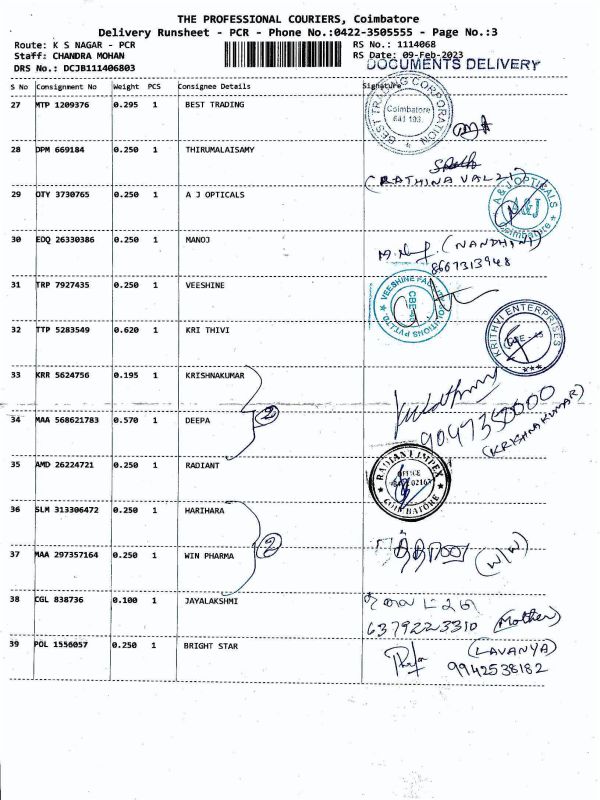 THE PROFESSIONAL COURIERS, Coimbatore
Delivery Runsheet - PCR - Phone No.:0422-3505555 - Page No.:3
Route: K S NAGAR - PCR RS No.: 1114068
Staff: CHANDRA MOHAN RS Date: 09-Feb-2023
DRS No.: DCJB111406803 DOCUMENTS DELIVERY
S No Consignment No Weight PCS Consignee Details Signature
27 MTP 1209376 0.295 1 BEST TRADING
BEST TRADING CORPORATION
Coimbatore
641 103
28 DPM 669184 0.250 1 THIRUMALAISAMY
29 OTY 3730765 0.250 1 A J OPTICALS
A&J OPTICALS
A&J
Coimbatore
30 EDQ 26330386 0.250 1 MANOJ
(NANDHINI)
8667313948
31 TRP 7927435 0.250 1 VEESHINE
VEESHINE
SOLUTIONS PVT LTD
32 TTP 5283549 0.620 1 KRI THIVI
KRITHVI ENTERPRISES
33 KRR 5624756 0.195 1 KRISHNAKUMAR
34 MAA 568621783 0.570 1 DEEPA
2
(KRISHNAKUMAR)
35 AMD 26224721 0.250 1 RADIANT
RADIANT IMPEX
OFFICE
COIMBATORE
36 SLM 313306472 0.250 1 HARIHARA
37 MAA 297357164 0.250 1 WIN PHARMA
2
(W/W)
38 CGL 838736 0.100 1 JAYALAKSHMI
6379223310 (Mother)
39 POL 1556057 0.250 1 BRIGHT STAR
(LAVANYA)
9942538182